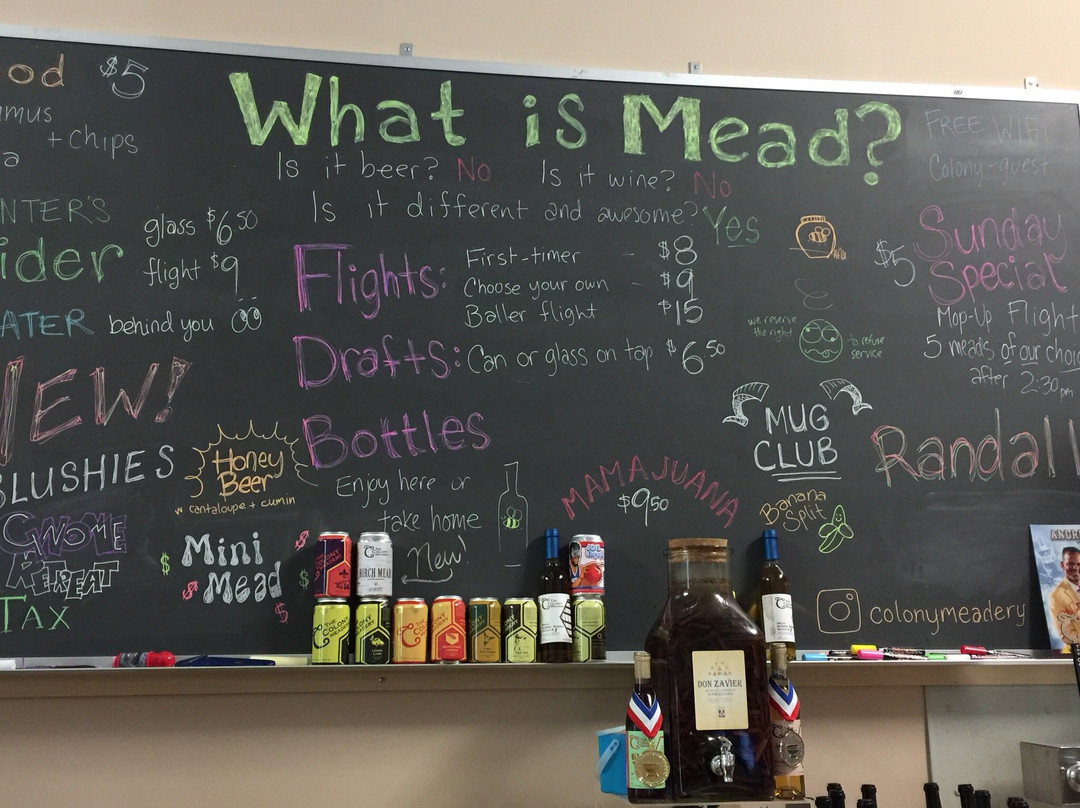 od $5
mus
+ chips
a
NTER'S
ider
glass $6.50
flight $9
ATER behind you
NEW!
BLUSHIES
Honey
Beer
w cantaloupe + cumin
GNOME
REPEAT
TAX
$ Mini $
$ Mead $
$
What is Mead?
Is it beer? No Is it wine? No
Is it different and awesome? Yes
Flights:
First-timer - $8
Choose your own - $9
Baller flight $15
Drafts: Can or glass on tap $6.50
Bottles
Enjoy here or
take home
New!
MAMAJUANA
$9.50
we reserve
the right
to refuse
service
MUG
CLUB
Banana
Split
FREE WIFI
Colony-guest
$5 Sunday
Special
Mop-Up Flight
5 meads of our choic
after 2:30pm
Randall
colonymeadery
ANDR
BIRCH MEAD
THE
COLONY
MEADERY
DON ZAVIER